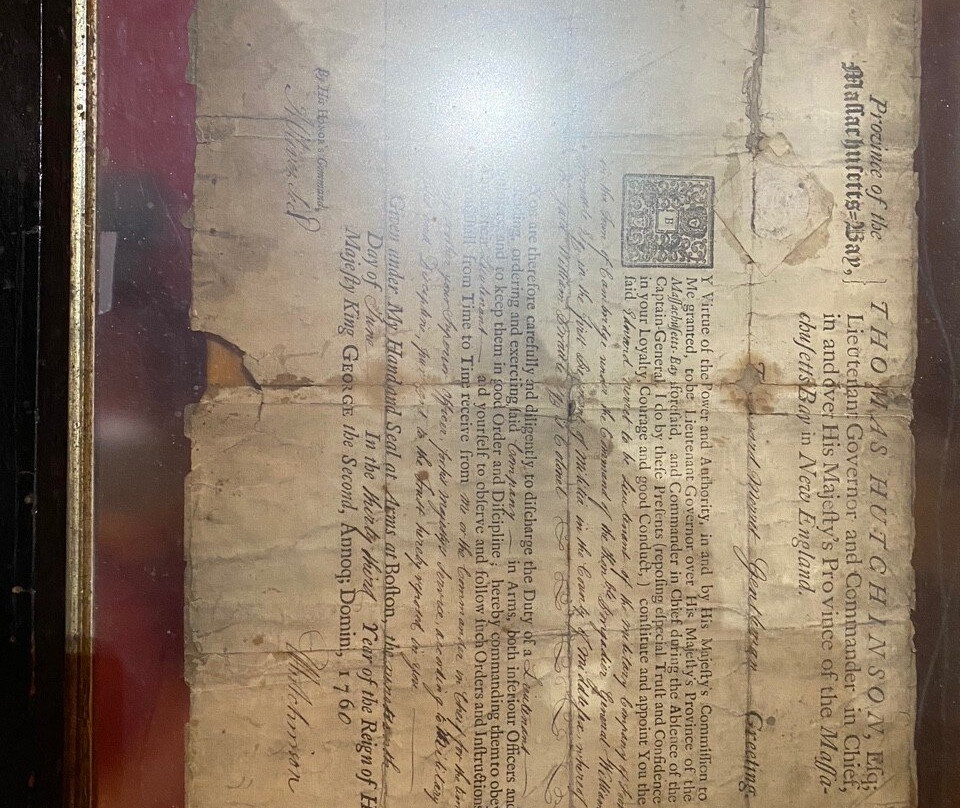 Province of the
Maſſachuſetts=Bay,
} THOMAS HUTCHINSON, Eſq;
Lieutenant Governor and Commander in Chief,
in and over His Majeſty's Province of the Maſſa-
chuſetts Bay in New England.
Edmund Mount Gentleman Greeting.
B
Y Virtue of the Power and Authority, in and by His Majeſty's Commiſſion to
Me granted, to be Lieutenant Governor over His Majeſty's Province of the
Maſſachuſetts-Bay aforeſaid, and Commander in Chief during the Abſence of the
Captain-General; I do by theſe Preſents (repoſing eſpecial Truſt and Confidence
in your Loyalty, Courage and good Conduct,) conſtitute and appoint You the
ſaid Edmund Mount to be Lieutenant of the military Company
in the town of Cambridge under the Command of the Honble Brigadier General William
Brattle in the first Regiment of militia in the County of Middlesex, whereof
the said William Brattle Esqr. is Colonel
You are therefore carefully and diligently to diſcharge the Duty of a Lieutenant
ordering and exerciſing ſaid Company in Arms, both inferiour Officers and
and to keep them in good Order and Diſcipline; hereby commanding them to obey
Lieutenant and yourſelf to obſerve and follow ſuch Orders and Inſtructions
from Time to Time receive from Me or the Commander in Chief for the time
your Superiour Officers for his Majesty's Service, according to military
and Discipline, pursuant to the Trust hereby reposed in you
Given under My Hand and Seal at Arms at Boſton, the
Day of June In the thirty third Year of the Reign of H
Majeſty King GEORGE the Second, Annoq; Domini, 1760
By His Honor's Command,
Hutchinson